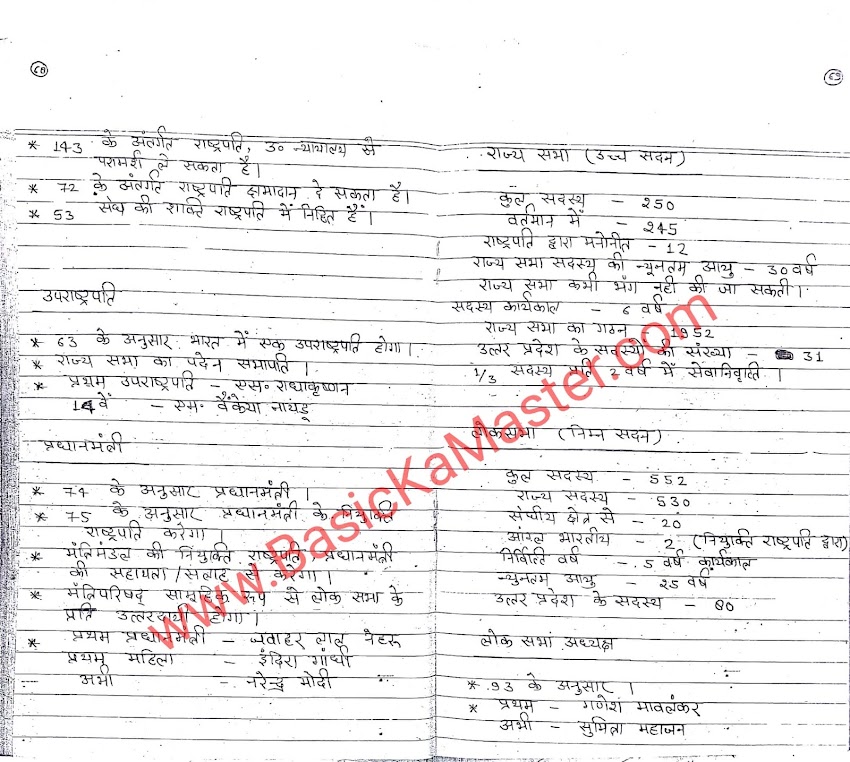 68
* 143 के अंतर्गत राष्ट्रपति, उ० न्यायालय से
परामर्श ले सकता है।
* 72 के अंतर्गत राष्ट्रपति क्षमादान दे सकता है।
* 53 संघ की शक्ति राष्ट्रपति में निहित है।
उपराष्ट्रपति
* 63 के अनुसार भारत में एक उपराष्ट्रपति होगा।
* राज्य सभा का पदेन सभापति।
* प्रथम उपराष्ट्रपति - एस० राधाकृष्णन
14वें - एम० वैंकेया नायडू
प्रधानमंत्री
* 74 के अनुसार प्रधानमंत्री।
* 75 के अनुसार प्रधानमंत्री के नियुक्ति
राष्ट्रपति करेगा।
* मंत्रिमंडल की नियुक्ति राष्ट्रपति, प्रधानमंत्री
की सहायता/सलाह से करेगा।
* मंत्रिपरिषद् सामूहिक रूप से लोक सभा के
प्रति उत्तरदायी होगा।
* प्रथम प्रधानमंत्री - जवाहर लाल नेहरू
प्रथम महिला - इंदिरा गांधी
अभी - नरेन्द्र मोदी
69
राज्य सभा (उच्च सदन)
कुल सदस्य - 250
वर्तमान में - 245
राष्ट्रपति द्वारा मनोनीत - 12
राज्य सभा सदस्य की न्यूनतम आयु - 30 वर्ष
राज्य सभा कभी भंग नही की जा सकती।
सदस्य कार्यकाल - 6 वर्ष
राज्य सभा का गठन - 1952
उत्तर प्रदेश के सदस्यो की संख्या - 31
1/3 सदस्य प्रति 2 वर्ष में सेवानिवृत्ति।
लोकसभा (निम्न सदन)
कुल सदस्य - 552
राज्य सदस्य - 530
संघीय क्षेत्र से - 20
आंग्ल भारतीय - 2 (नियुक्ति राष्ट्रपति द्वारा)
वर्ष - 5 वर्ष कार्यकाल
न्युनतम आयु - 25 वर्ष
उत्तर प्रदेश के सदस्य - 80
लोक सभा अध्यक्ष
* 93 के अनुसार।
* प्रथम - गणेश मावलंकर
अभी - सुमित्रा महाजन
www.BasicKaMaster.com